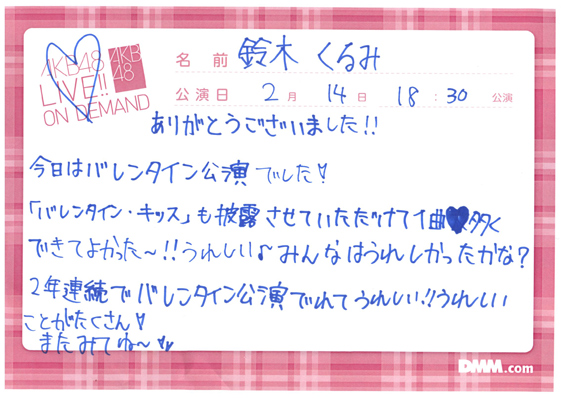 AKB48
LIVE!!
ON DEMAND
AKB
48
名前 鈴木 くるみ
公演日 2月 14日 18:30 公演
ありがとうございました!!
今日はバレンタイン公演でした♡
「バレンタイン・キッス」も披露させていただけて1曲♥多く
できてよかった〜!!うれしい♪みんなはうれしかったかな?
2年連続でバレンタイン公演でれてうれしい!!うれしい
ことがたくさん♡
またみてね〜♡♡
DMM.com